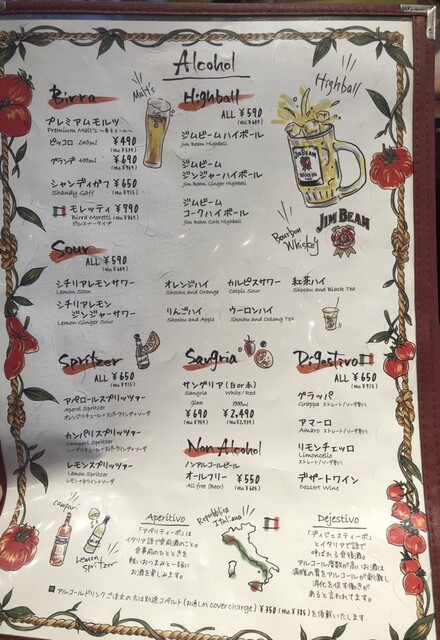 Alcohol
Birra
Malt's
プレミアムモルツ
Premium Malt's
ピッコロ 240ml ¥490
グランデ 400ml ¥690
シャンディガフ ¥650
Shandy Gaff
モレッティ ¥790
Birra Moretti
Highball
ALL ¥590
ジムビームハイボール
Jim Beam Highball
ジムビーム
ジンジャーハイボール
Jim Beam Ginger Highball
ジムビーム
コークハイボール
Jim Beam Cork Highball
Highball
JIM BEAM
Bourbon
Whiskey
JIM BEAM
Sour
ALL ¥590
シチリアレモンサワー
Lemon Sour
オレンジハイ
Shochu and Orange
カルピスサワー
Calpis Sour
紅茶ハイ
Shochu and Black Tea
シチリアレモン
ジンジャーサワー
Lemon Ginger Sour
りんごハイ
Shochu and Apple
ウーロンハイ
Shochu and Oolong Tea
Spritzer
ALL ¥650
アペロールスプリッツァー
Aperol Spritzer
オレンジリキュール+スパークリングワイン+ソーダ
カンパリスプリッツァー
Campari Spritzer
ハーブリキュール+スパークリングワイン+ソーダ
レモンスプリッツァー
Lemon Spritzer
レモン+白ワイン+ソーダ
Sangria
サングリア (白or赤)
Sangria White/Red
Glass 1000ml
¥690 ¥2,490
Non Alcohol
ノンアルコールビール
オールフリー ¥550
All free (Beer)
Digestivo
ALL ¥650
グラッパ
Grappa ストレート/ソーダ割り
アマーロ
Amaro ストレート/ソーダ割り
リモンチェッロ
Limoncello
ストレート/ソーダ割り
デザートワイン
Dessert Wine
campari
Lemon
Spritzer
Aperitivo
「アペリティーボ」は
イタリア語で食前酒のこと。
食事前のひとときを
軽いおつまみと一緒に
お酒を楽しみます。
Repubblica
Italiana
Dejestivo
「ディジェスティーボ」
とイタリア語で
呼ばれる食後酒。
アルコール度数が高いお酒は
満腹の胃をアルコールが刺激し
消化を促す働きが
あると言われてます。
アルコールドリンクご注文の方は別途コペルト(お通し/cover charge) ¥350 (inc.¥385)を頂戴いたします